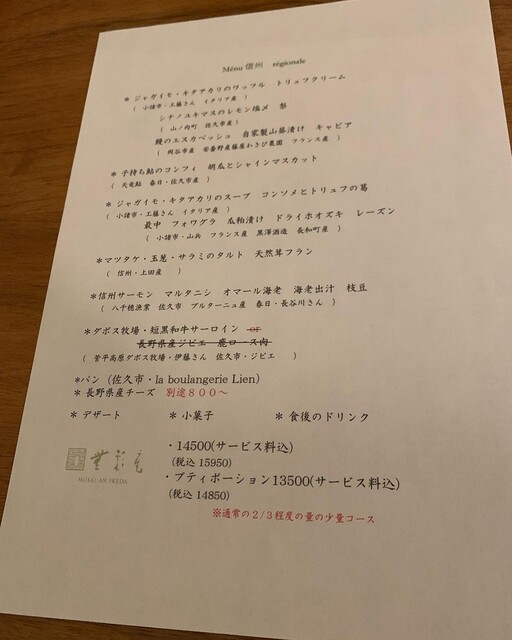 Menu 信州 régionale
* ジャガイモ・キタアカリのワッフル トリュフクリーム
( 小諸市・工藤さん イタリア産 )
シナノユキマスのレモン塩〆 梨
( 山ノ内町 佐久市産 )
鰻のエスカベッシュ 自家製山葵漬け キャビア
( 岡谷市産 安曇野産藤屋わさび農園 フランス産 )
* 子持ち鮎のコンフィ 胡瓜とシャインマスカット
( 天竜鮎 春日・佐久市産 )
* ジャガイモ・キタアカリのスープ コンソメとトリュフの葛
( 小諸市・工藤さん イタリア産 )
最中 フォワグラ 瓜粕漬け ドライホオズキ レーズン
( 小諸市・山兵 フランス産 黒澤酒造 長和町産 )
*マツタケ・玉葱・サラミのタルト 天然茸フラン
( 信州・上田産 )
*信州サーモン マルタニシ オマール海老 海老出汁 枝豆
( 八千穂漁業 佐久市 ブルターニュ産 春日・長谷川さん )
*ダボス牧場・短黒和牛サーロイン or
長野県産ジビエ 鹿ロース肉
( 菅平高原ダボス牧場・伊藤さん 佐久市・ジビエ )
*パン（佐久市・la boulangerie Lien）
* 長野県産チーズ 別途８００～
* デザート * 小菓子 * 食後のドリンク
・14500(サービス料込)
(税込 15950)
・プティポーション13500(サービス料込)
(税込 14850)
※通常の２/３程度の量の少量コース
無彩庵
MUSAI-AN IKEDA